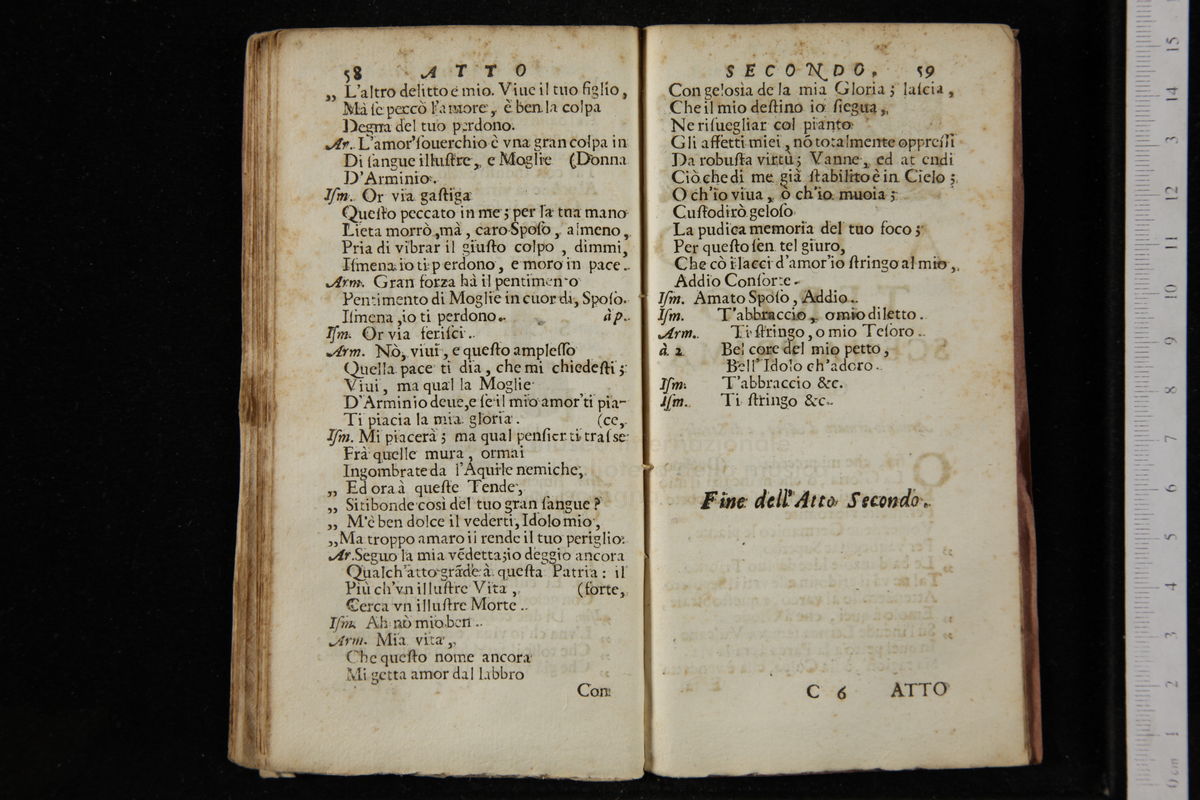 58 ATTO
„ L'altro delitto è mio. Viue il tuo figlio,
Mà ſe peccò l'amore, è ben la colpa
Degna del tuo perdono.
Ar. L'amor' ſouerchio è vna gran colpa in
Di ſangue illuſtre, e Moglie (Donna
D'Arminio.
Iſm. Or via gaſtiga
Queſto peccato in me; per la tua mano
Lieta morrò, mà, caro Spoſo, almeno,
Pria di vibrar il giuſto colpo, dimmi,
Iſmena io ti perdono, e moro in pace.
Arm. Gran forza hà il pentimento
Pentimento di Moglie in cuor di Spoſo.
Iſmena, io ti perdono. à p.
Iſm. Or via feriſci.
Arm. Nò, viui, e queſto ampleſſo
Quella pace ti dia, che mi chiedeſti;
Viui, ma qual la Moglie
D'Arminio deue, e ſe il mio amor' ti pia-
Ti piacia la mia gloria. (ce,
Iſm. Mi piacerà; ma qual penſier ti traſse
Frà quelle mura, ormai
Ingombrate da l'Aquile nemiche,
„ Ed ora à queſte Tende,
„ Sitibonde così del tuo gran ſangue?
„ M'è ben dolce il vederti, Idolo mio,
„ Ma troppo amaro ii rende il tuo periglio.
Ar. Seguo la mia vẽdetta; io deggio ancora
Qualch'atto grãde à queſta Patria: il
Più ch'vn illuſtre Vita, (forte,
Cerca vn illuſtre Morte.
Iſm. Ah nò mio ben.
Arm. Mia vita,
Che queſto nome ancora
Mi getta amor dal labbro
Con
SECONDO. 59
Con geloſia de la mia Gloria; laſcia,
Che il mio deſtino io ſiegua,
Ne riſuegliar col pianto
Gli affetti miei, nõ totalmente oppreſſi
Da robuſta virtù; Vanne, ed at endi
Ciò che di me già ſtabilito è in Cielo;
O ch'io viua, ò ch'io muoia;
Cuſtodirò geloſo
La pudica memoria del tuo foco;
Per queſto ſen tel giuro,
Che cò i lacci d'amor' io ſtringo al mio,
Addio Conſorte.
Iſm. Amato Spoſo, Addio.
Iſm. T'abbraccio, o mio diletto.
Arm. Ti ſtringo, o mio Teſoro.
à 2 Bel core del mio petto,
Bell' Idolo ch'adoro.
Iſm. T'abbraccio &c.
Iſm. Ti ſtringo &c.
Fine dell' Atto Secondo.
C 6 ATTO
0 cm 1 2 3 4 5 6 7 8 9 10 11 12 13 14 15